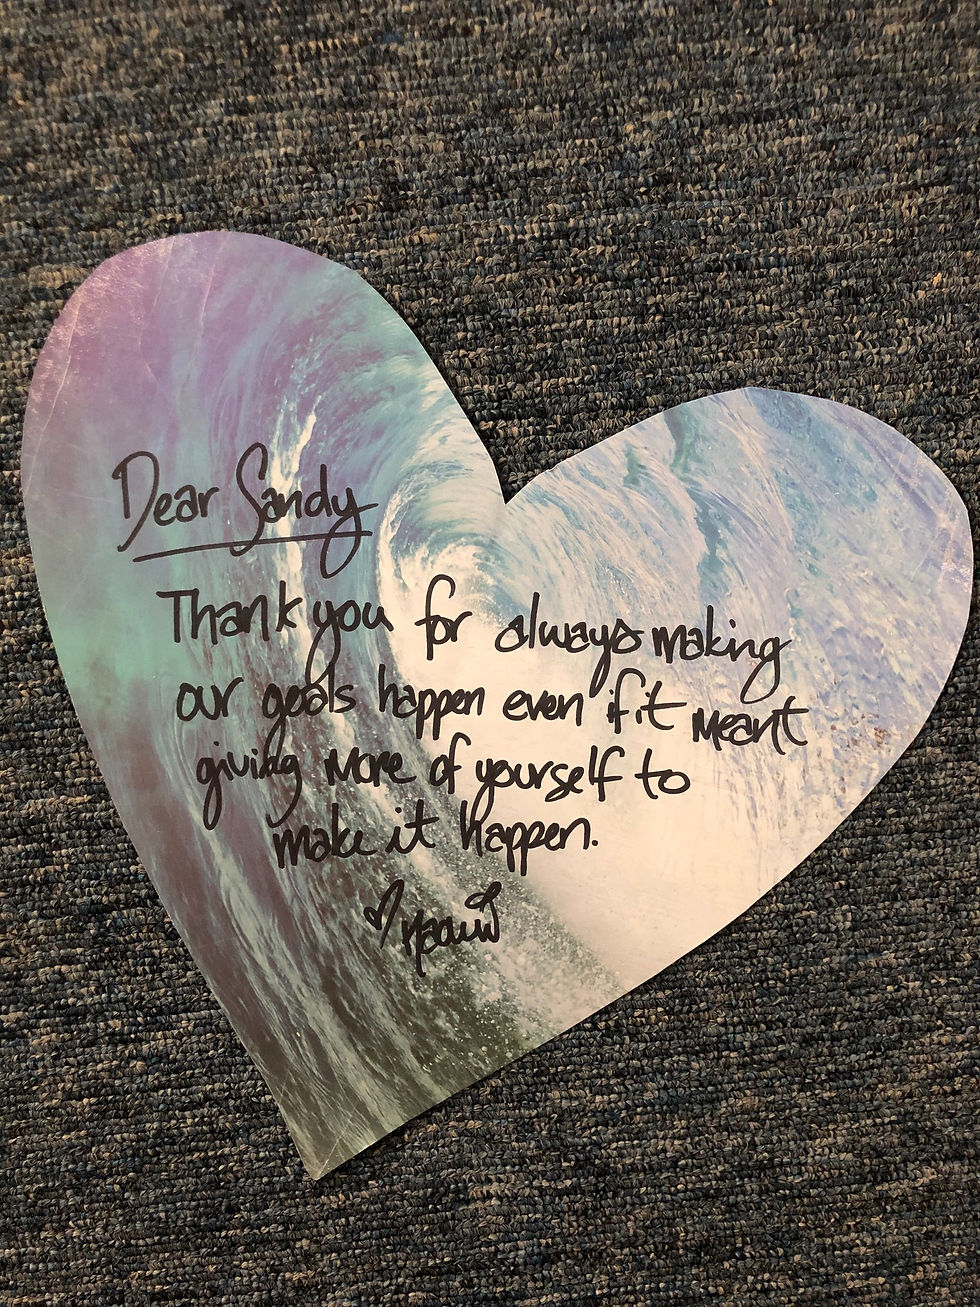 Dear Sandy
Thank you for always making
our goals happen even if it meant
giving more of yourself to
make it happen.